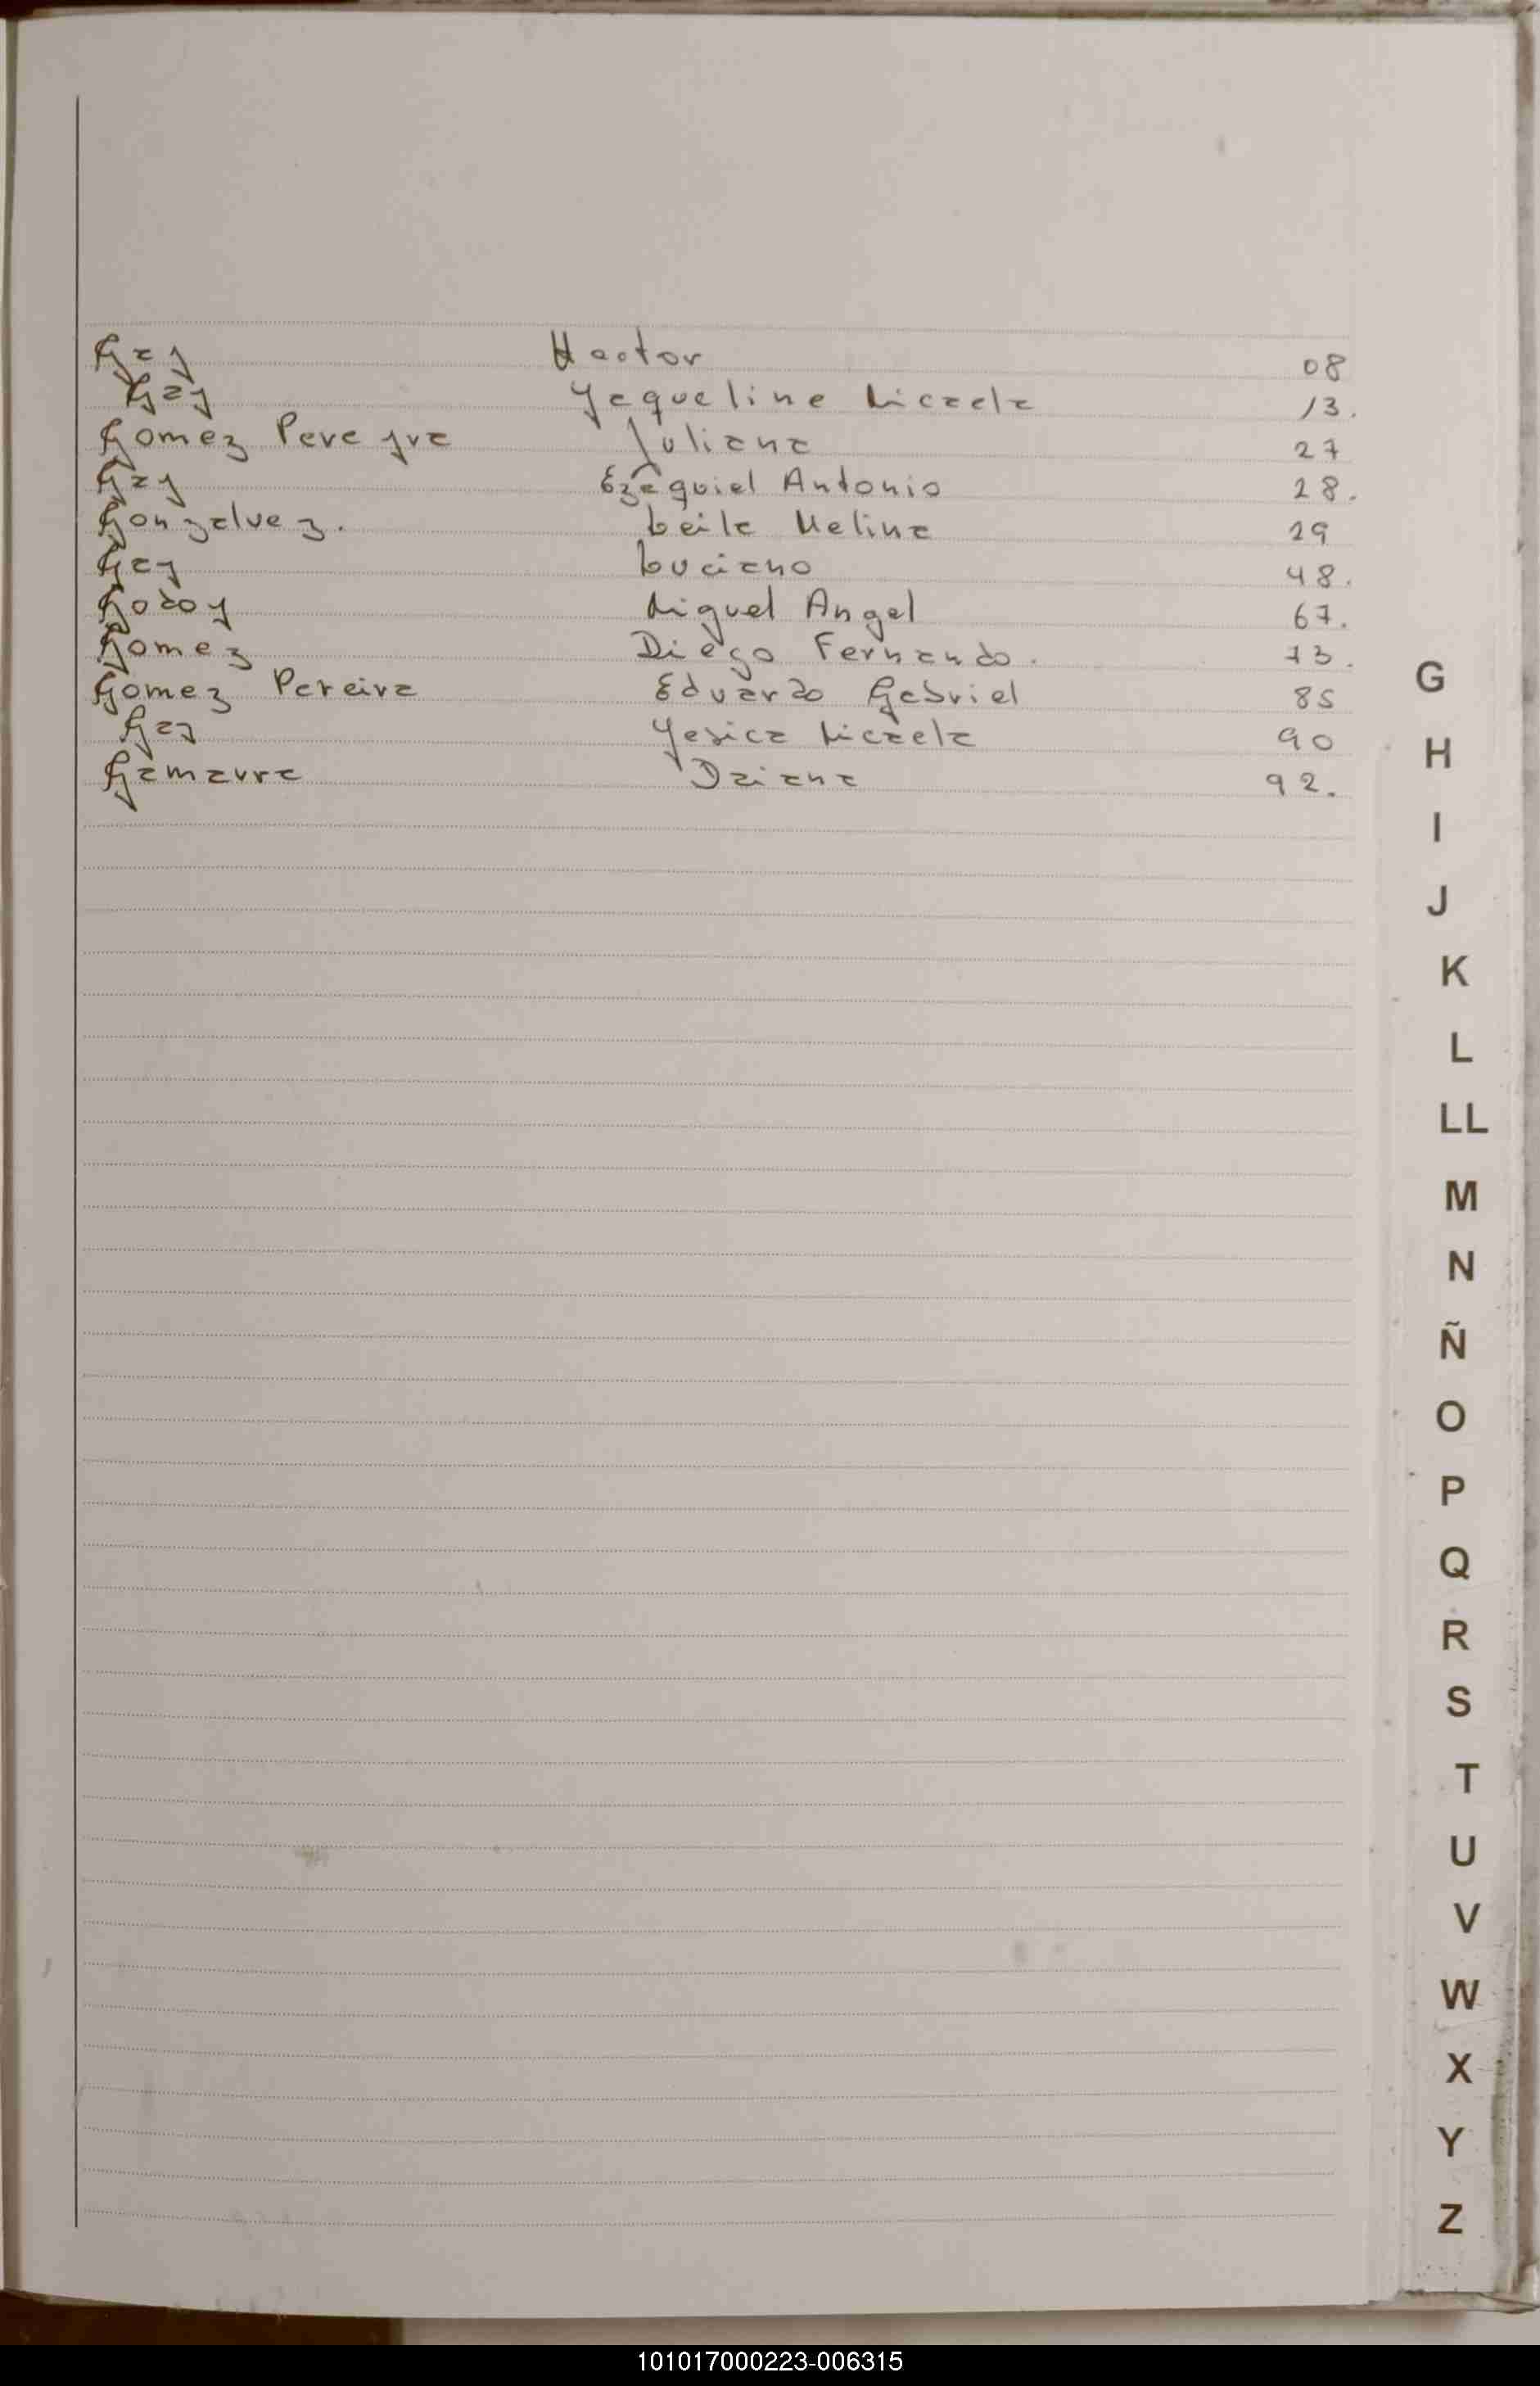 Gay Hector 08
Gay Yaqueline Micaela 13.
Gomez Pereyra Juliana 27
Gay Ezequiel Antonio 28.
Gonzalvez. Leila Melina 29
Gay Luciano 48.
Godoy Miguel Angel 67.
Gomez Diego Fernando. 73.
Gomez Pereira Eduardo Gabriel 85
Gay Yesica Micaela 90
Gamarra Daiana 92.
G
H
I
J
K
L
LL
M
N
Ñ
O
P
Q
R
S
T
U
V
W
X
Y
Z
101017000223-006315